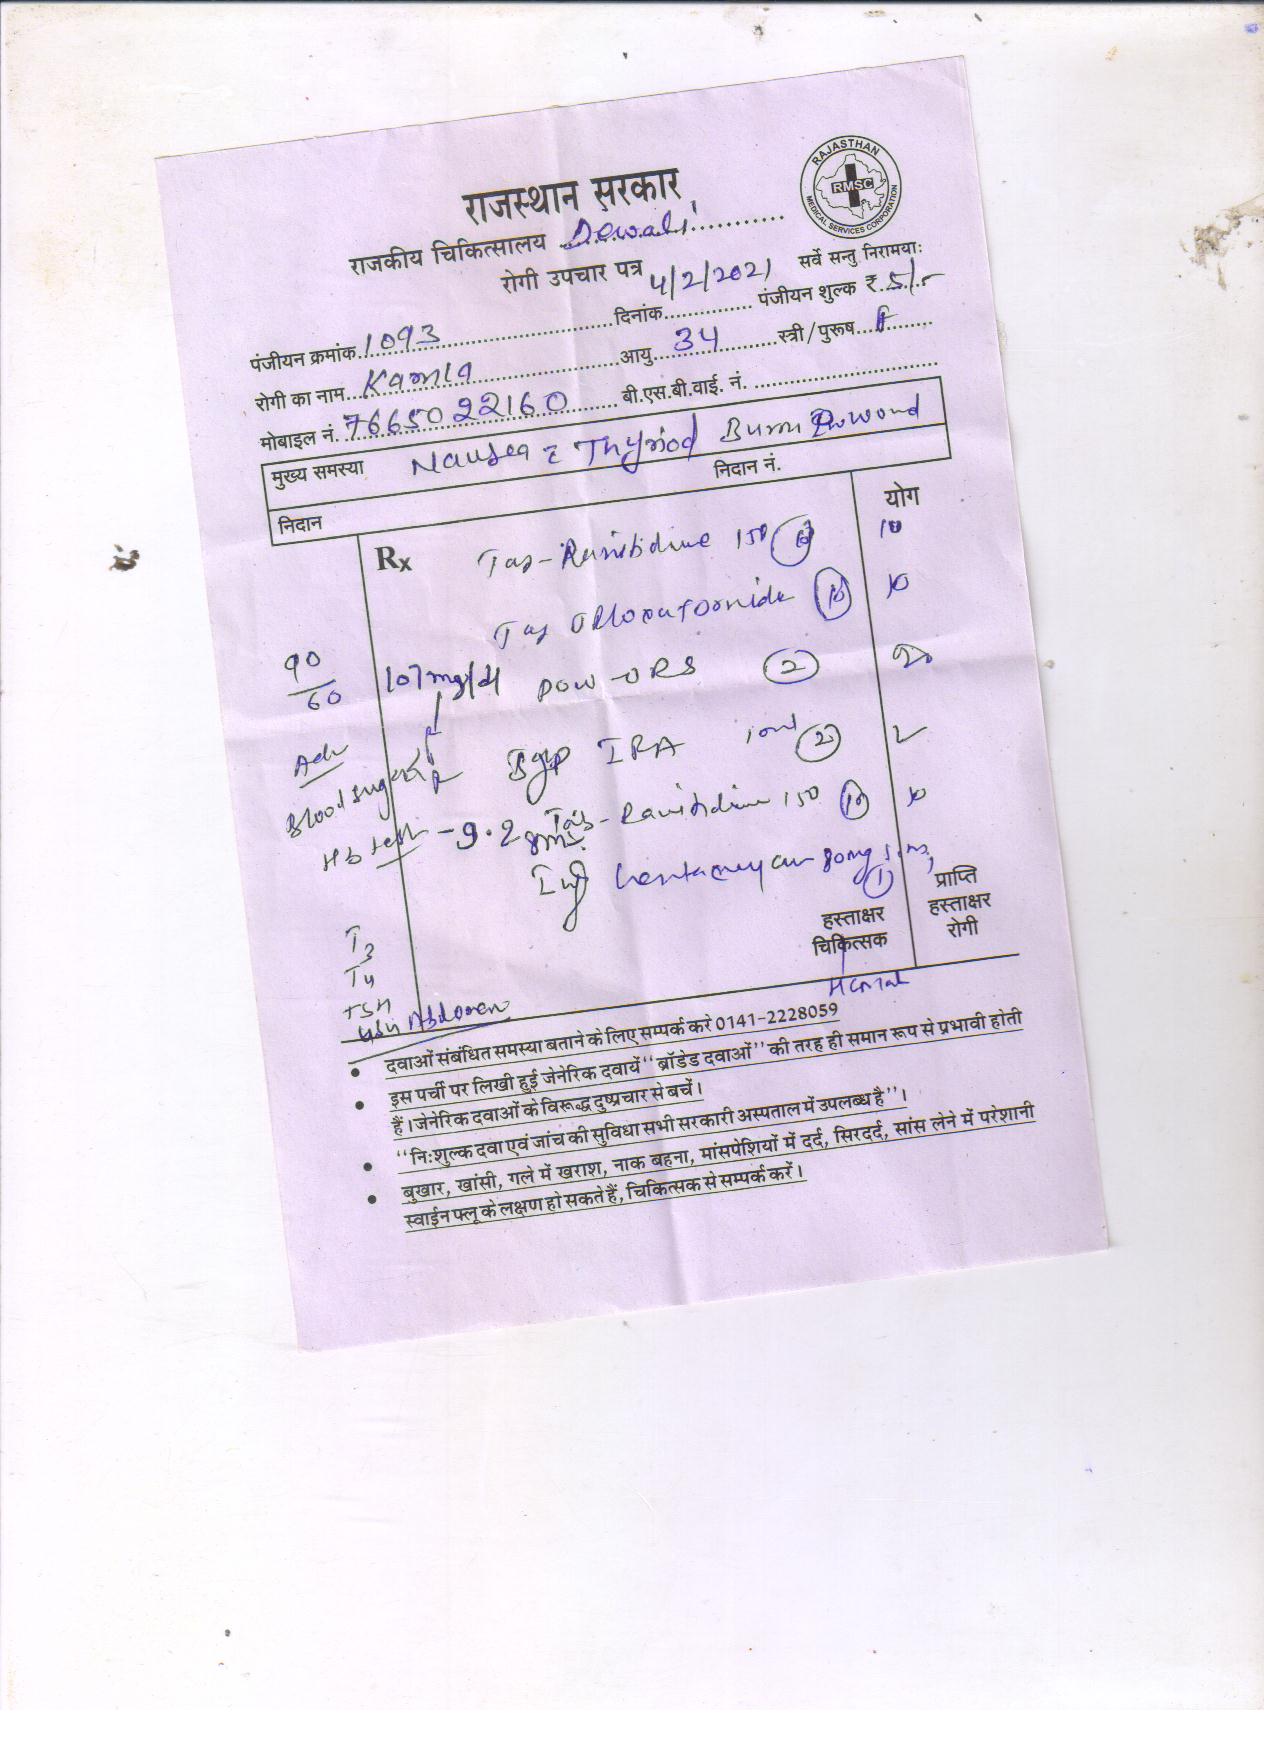 राजस्थान सरकार
RAJASTHAN
RMSC
MEDICAL SERVICES CORPORATION
राजकीय चिकित्सालय Dewali
रोगी उपचार पत्र
सर्वे सन्तु निरामयाः
पंजीयन क्रमांक 1093 दिनांक 4/2/2021 पंजीयन शुल्क ₹ 5/-
रोगी का नाम Kamla आयु 34 स्त्री/पुरूष F
मोबाइल नं. 7665022160 बी.एस.बी.वाई. नं.
मुख्य समस्या Nausea Thyriod Burn
निदान निदान नं.
Rx योग
Tab-Ranitidine 150 10 10
Tab 10 10
90/60 107mg/dl pow-ORS 2
Adv
Blood sugar 2
Hb test - 9.2 gms. Tab- Ranitidine 150 10 10
Inj Gentamycin 80mg 1
T3
T4
TSH
USG Abdomen
हस्ताक्षर चिकित्सक
प्राप्ति हस्ताक्षर रोगी
• दवाओं संबंधित समस्या बताने के लिए सम्पर्क करे 0141-2228059
• इस पर्ची पर लिखी हुई जेनेरिक दवायें "ब्रॉडेड दवाओं" की तरह ही समान रूप से प्रभावी होती
हैं। जेनेरिक दवाओं के विरूद्ध दुष्प्रचार से बचें।
• "निःशुल्क दवा एवं जांच की सुविधा सभी सरकारी अस्पताल में उपलब्ध है"।
• बुखार, खांसी, गले में खराश, नाक बहना, मांसपेशियों में दर्द, सिरदर्द, सांस लेने में परेशानी
स्वाईन फ्लू के लक्षण हो सकते हैं, चिकित्सक से सम्पर्क करें।